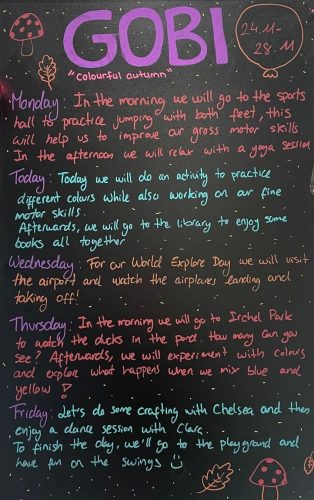 GOBI
"colourful autumn"
24.11-
28.11
Monday: In the morning we will go to the sports
hall to practice jumping with both feet, this
will help us to improve our gross motor skills.
In the afternoon we will relax with a yoga session
Today: Today we will do an activity to practice
different colours while also working on our fine
motor skills.
Afterwards, we will go to the library to enjoy some
books all together
Wednesday: For our World Explore Day we will visit
the airport and watch the airplanes landing and
taking off!
Thursday: In the morning we will go to Irchel Park
to watch the ducks in the pond. How many can you
see? Afterwards, we will experiment with colours
and explore what happens when we mix blue and
yellow!
Friday: Let's do some crafting with Chelsea and then
enjoy a dance session with Clara.
To finish the day, we'll go to the playground and
have fun on the swings